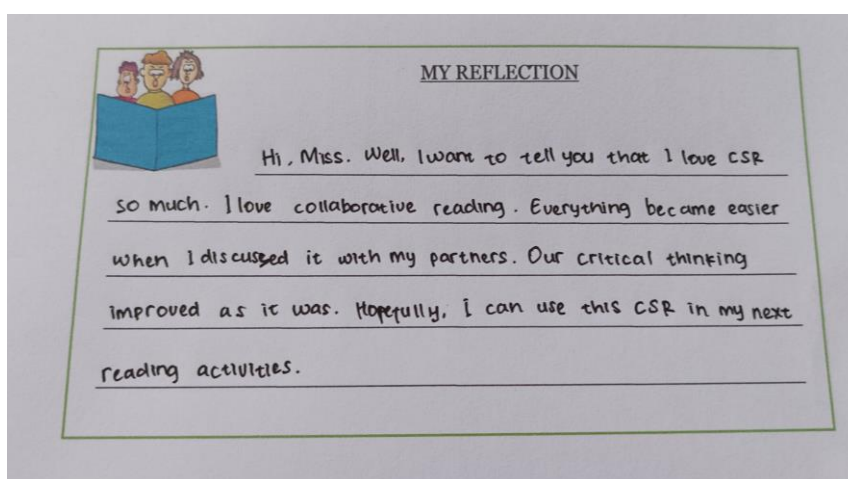 MY REFLECTION
Hi, Miss. Well, I want to tell you that I love CSR
so much. I love collaborative reading. Everything became easier
when I discussed it with my partners. Our critical thinking
improved as it was. Hopefully, I can use this CSR in my next
reading activities.